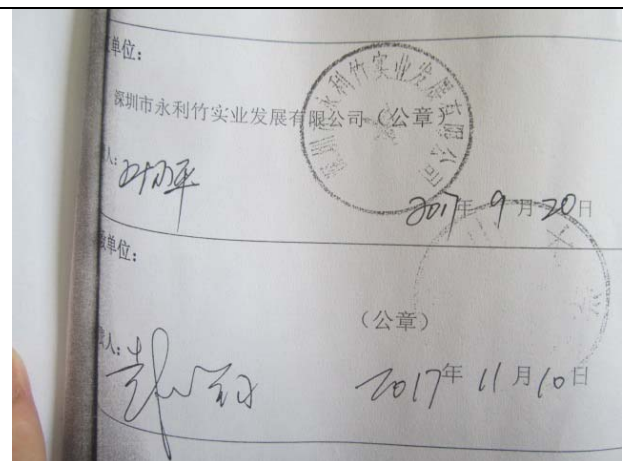 单位：
深圳市永利竹实业发展有限公司（公章）
深圳市永利竹实业发展有限公司
人：
2017年9月20日
单位：
（公章）
人：
2017年11月10日